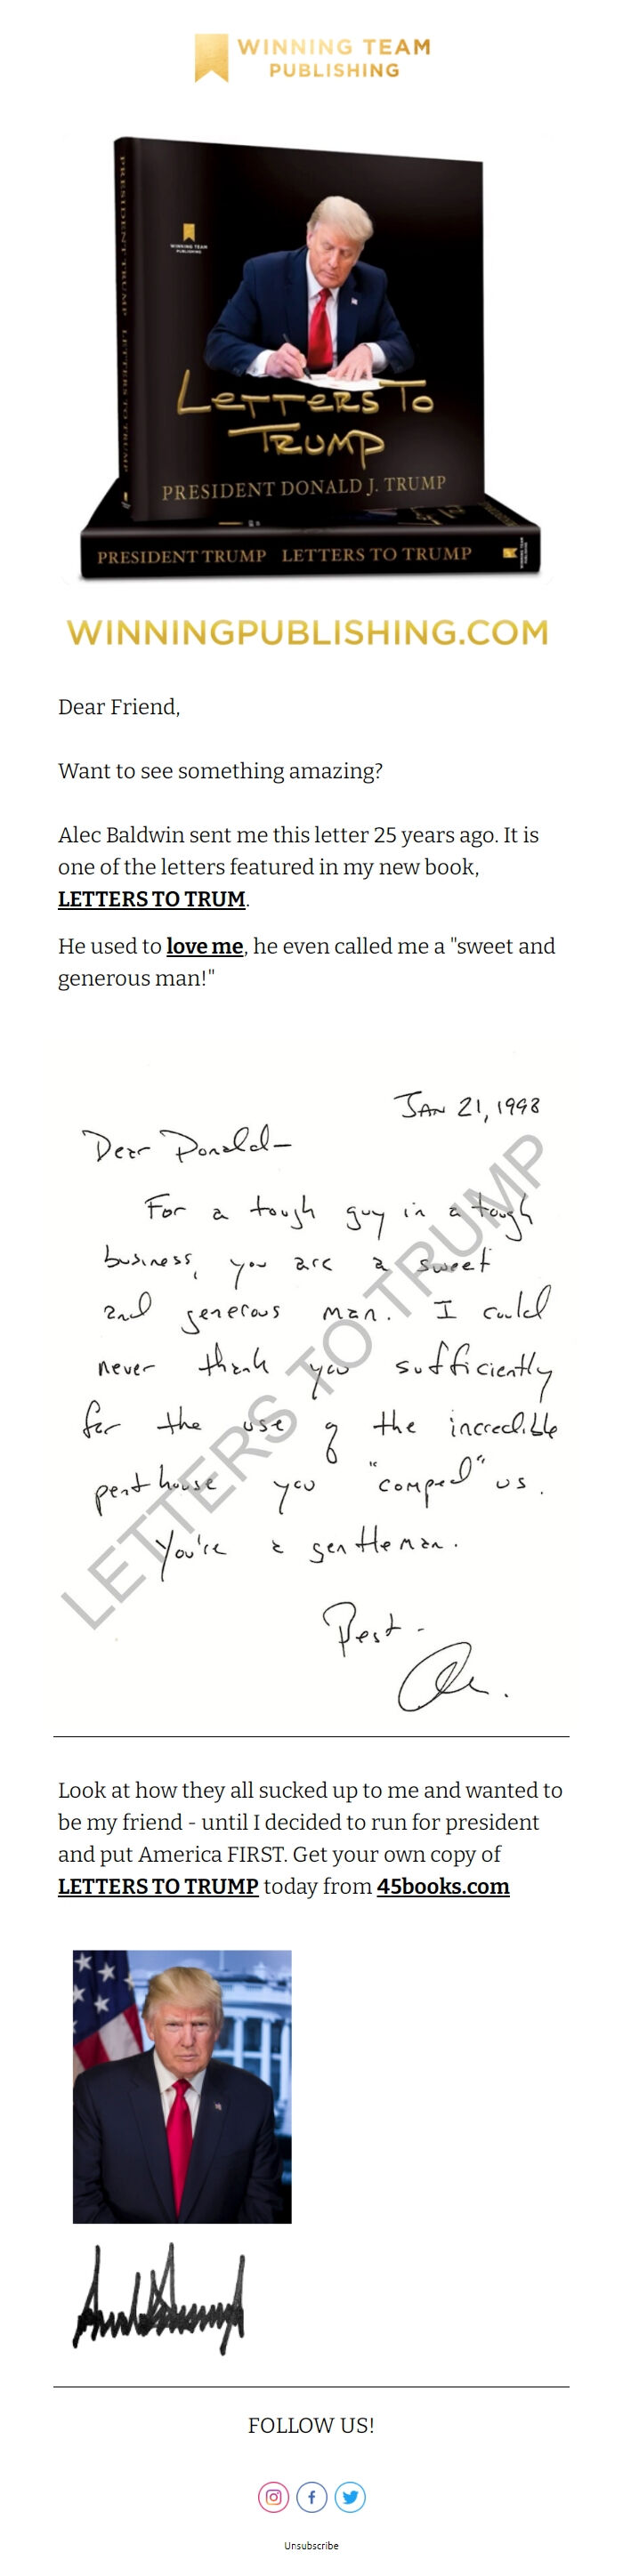 WINNING TEAM
PUBLISHING
PRESIDENT TRUMP LETTERS TO TRUMP
WINNING TEAM
PUBLISHING
LETTERS TO
TRUMP
PRESIDENT DONALD J. TRUMP
PRESIDENT TRUMP LETTERS TO TRUMP
WINNINGPUBLISHING.COM
Dear Friend,
Want to see something amazing?
Alec Baldwin sent me this letter 25 years ago. It is
one of the letters featured in my new book,
LETTERS TO TRUM.
He used to love me, he even called me a "sweet and
generous man!"
JAN 21, 1998
Dear Donald—
For a tough guy in a tough
business, you are a sweet
and generous man. I could
never thank you sufficiently
for the use of the incredible
penthouse you "comped" us.
You're a gentleman.
Best -
LETTERS TO TRUMP
Look at how they all sucked up to me and wanted to
be my friend - until I decided to run for president
and put America FIRST. Get your own copy of
LETTERS TO TRUMP today from 45books.com
FOLLOW US!
Unsubscribe